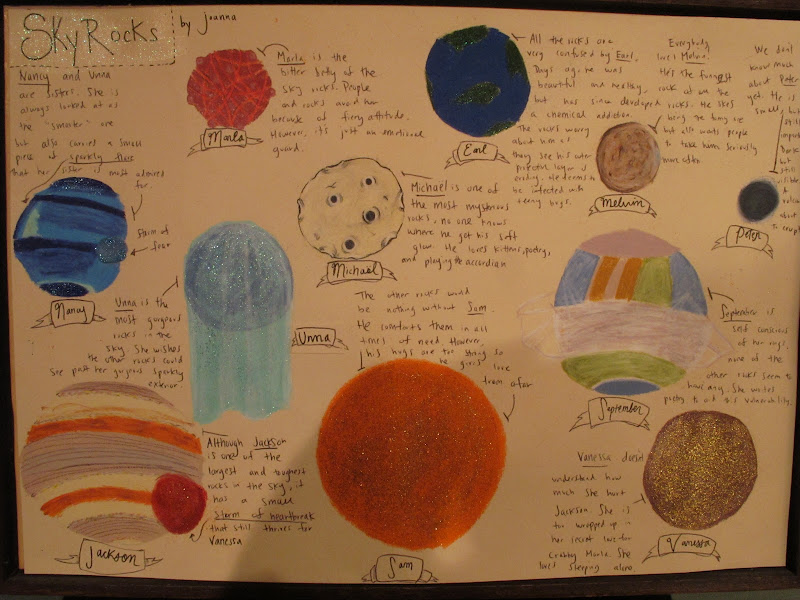 SkyRocks
by Joanna
Nancy and Unna
are sisters. She is
always looked at as
the "smarter" one
but also carries a small
piece of sparkly there
that her sister is most admired
for.
Storm of
fear
Nancy
Marla is the
bitter betty of the
sky rocks. People
and rocks avoid her
because of fiery attitude.
However, it's just an emotional
guard.
Marla
All the rocks are
very confused by Earl.
Days ago, he was
beautiful and healthy,
but has since developed
a chemical addiction.
The rocks worry
about him as
they see his outer
protection layer is
eroding. He seems to
be infected with
teeny bugs.
Earl
Everybody
loves Melvin.
He's the funniest
rock of all the
rocks. He likes
being the funny one
but also wants people
to take him seriously
more often
Melvin
We don't
know much
about Peter
yet. He is
small, but
still
important
Dark
but
still
visible
&
about
to erupt
Peter
Michael is one of
the most mysterious
rocks, no one knows
where he got his soft
glow. He loves kittens, poetry,
and playing the accordian
Michael
Unna is the
most gorgeous
rocks in the
sky. She wishes
the other rocks could
see past her gorgeous sparkly
exterior
Unna
The other rocks would
be nothing without Sam.
He comforts them in all
times of need. However,
his hugs are too strong so
he gives love
from afar
Sam
September is
self conscious
of her rings,
none of the
other rocks seem to
have any. She writes
poetry to aid this vulnerability.
September
Although Jackson
is one of the
largest and toughest
rocks in the sky, it
has a small
storm of heartbreak
that still thrives for
Vanessa
Jackson
Vanessa doesn't
understand how
much she hurt
Jackson. She is
too wrapped up in
her secret love for
Crabby Marla. She
loves sleeping alone.
Vanessa